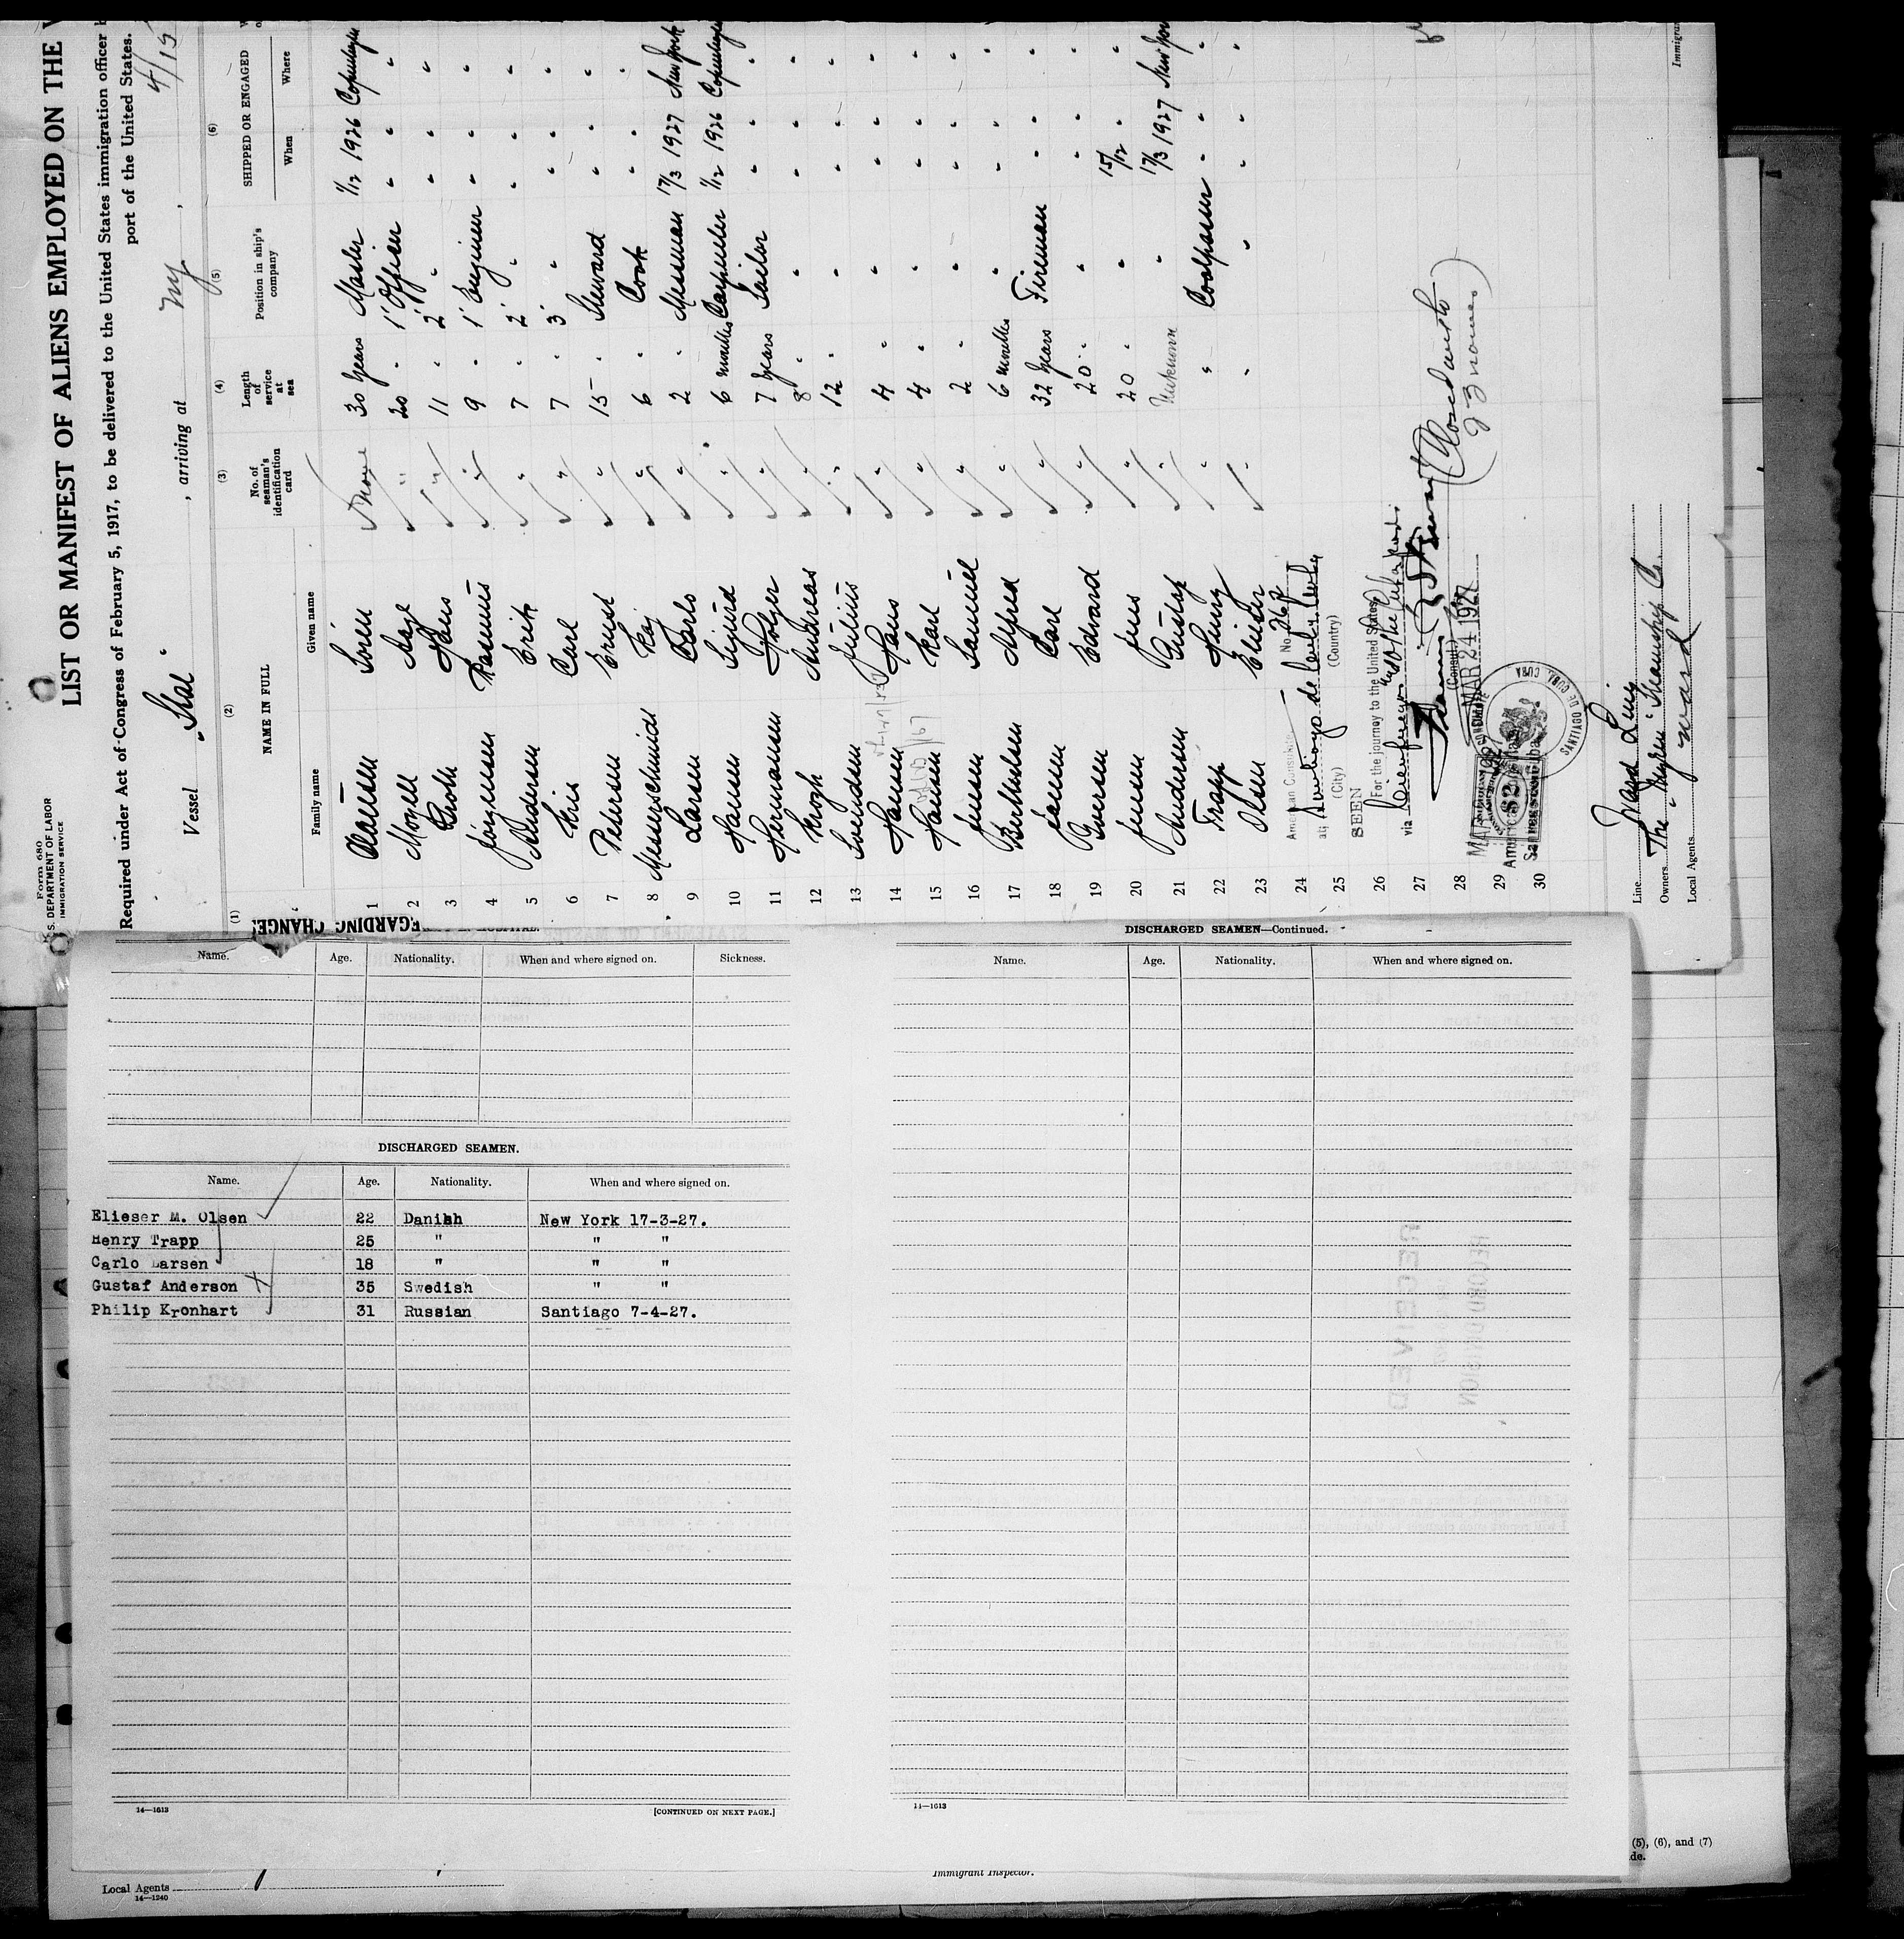 Form 680
U. S. DEPARTMENT OF LABOR
IMMIGRATION SERVICE
LIST OR MANIFEST OF ALIENS EMPLOYED ON THE
Required under Act of Congress of February 5, 1917, to be delivered to the United States immigration officer
port of the United States.
Vessel "Stal" , arriving at NY , 4/15
(1) (2) (3) (4) (5) (6)
NAME IN FULL
No. of seaman's identification card
Length of service at sea
Position in ship's company
SHIPPED OR ENGAGED
Family name Given name When Where
1 Sören None 30 years Master 1/12 1926 Copenhagen
2 Aage " 20 " 1' Officer " " "
3 Broth Hans " 11 " 2' " " " "
4 Jörgensen Rasmus " 9 " 1' Engineer " " "
5 Andersen Erik " 7 " 2' " " " "
6 Friis Carl " 7 " 3' " " " "
7 Petersen Ernst " 15 " Steward " " "
8 Messerschmidt Kaj " 6 " Cook " " "
9 Larsen Carlo " 2 " Messman 17/3 1927 New York
10 Hansen Sigurd " 6 months Carpenter 1/12 1926 Copenhagen
11 Hermansen Holger " 7 years Sailor " " "
12 Krogh Andreas " 8 " " " " "
13 Svendsen Julius " 12 " " " " "
14 Hansen Hans " 4 " " " " "
15 Hansen Karl " 4 " " " " "
16 Jensen Samuel " 2 " " " " "
17 Berthelsen Alfred " 6 months " " " "
18 Jensen Carl " 32 years Fireman " " "
19 Iversen Edvard " 20 " " " " "
20 Jensen Jens " 20 " " 15/12 " "
21 Andersen Gustaf " Unknown " 17/3 1927 New York
22 Trapp Henry " " Coalpasser " " "
23 Olsen Elieser " " " " "
24
25
26
27
28
29
30
American Consulate
at Santiago de Cuba, Cuba
(City) (Country)
SEEN No. 267
For the journey to the United States
via Cienfuegos
(Consul)
MAR 24 1927
SANTIAGO DE CUBA, CUBA
(Closed with
23 names)
Line Ward Line
Owners The Steamship Co.
Local Agents Ward
EGARDING CHANGE
Name. Age. Nationality. When and where signed on. Sickness.
DISCHARGED SEAMEN.
Name. Age. Nationality. When and where signed on.
Elieser M. Olsen 22 Danish New York 17-3-27.
Henry Trapp 25 " " "
Carlo Larsen 18 " " "
Gustaf Anderson 35 Swedish " "
Philip Kronhart 31 Russian Santiago 7-4-27.
14—1613 [CONTINUED ON NEXT PAGE.]
DISCHARGED SEAMEN—Continued.
Name. Age. Nationality. When and where signed on.
14—1613
(5), (6), and (7)
de.
Immigrant Inspector.
Local Agents
14—1240